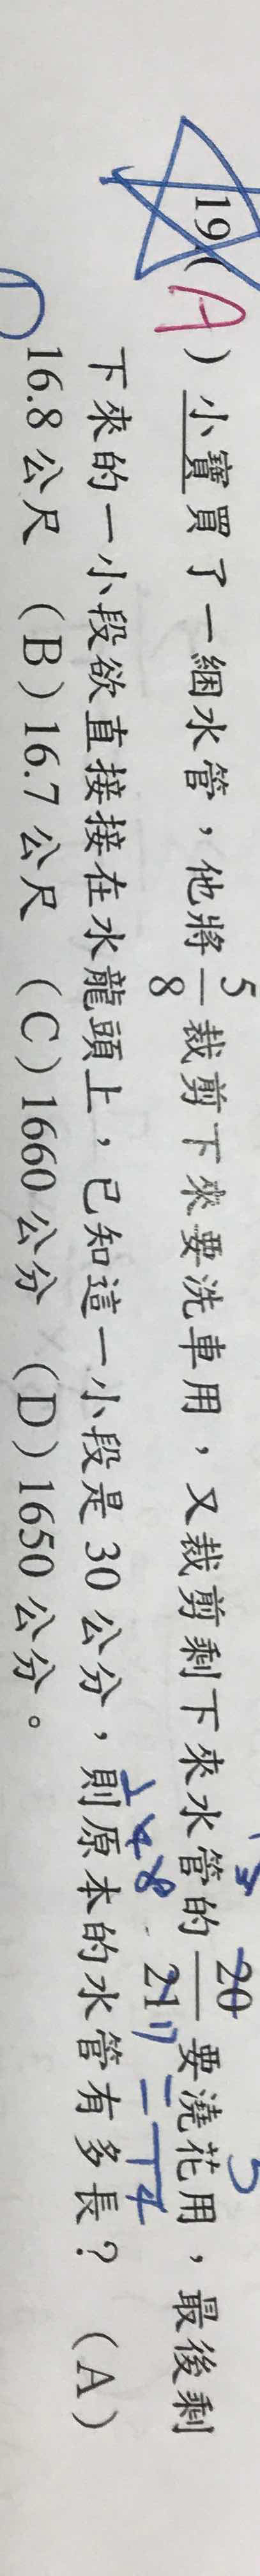 19.( A ) 小寶買了一綑水管，他將5/8裁剪下來要洗車用，又裁剪剩下來水管的20/21要澆花用，最後剩
下來的一小段欲直接接在水龍頭上，已知這一小段是 30 公分，則原本的水管有多長？ （A）
16.8 公尺 （B）16.7 公尺 （C）1660 公分 （D）1650 公分。